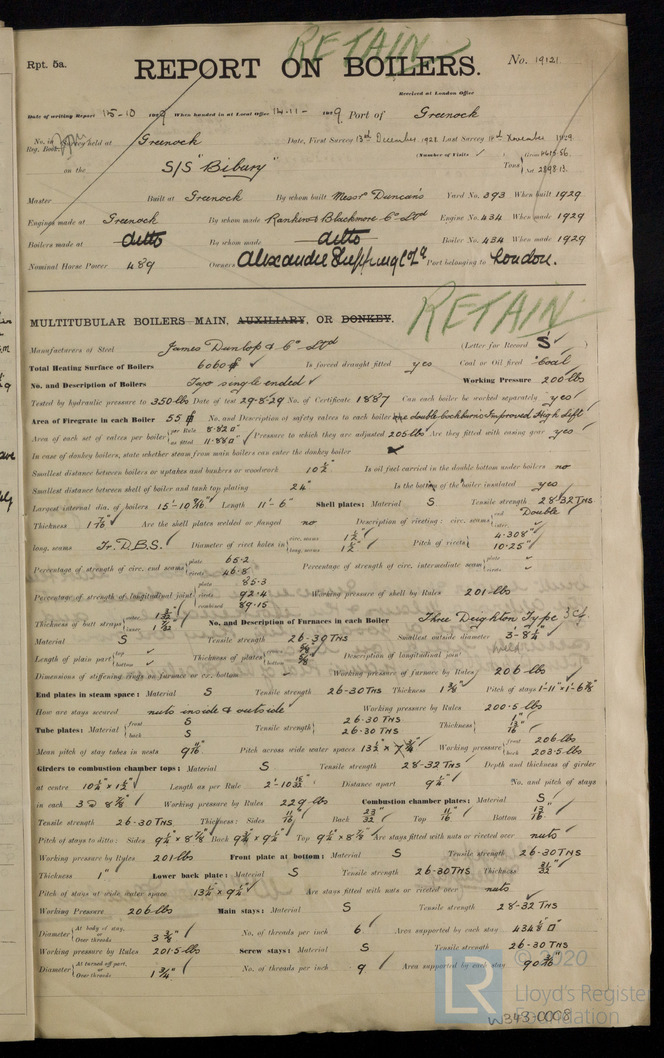 RETAIN
Rpt. 5a.
REPORT ON BOILERS.
No. 19121
Received at London Office
Date of writing Report 15-10 1929 When handed in at Local Office 14-11- 1929 Port of Greenock
No. in Reg. Book. Survey held at Greenock Date, First Survey 13th December 1928 Last Survey 11th November 1929
on the S/S "Bibury" (Number of Visits ✓ ) Tons Gross 4615.56 Net 2898.13
Master Built at Greenock By whom built Messrs Duncan's Yard No. 393 When built 1929
Engines made at Greenock By whom made Rankin & Blackmore Co Ltd Engine No. 434 When made 1929
Boilers made at ditto By whom made ditto Boiler No. 434 When made 1929
Nominal Horse Power 489 Owners Alexander Shipping Co Ld Port belonging to London.
RETAIN
MULTITUBULAR BOILERS—MAIN, AUXILIARY, OR DONKEY.
Manufacturers of Steel James Dunlop & Co Ltd (Letter for Record S ✓ )
Total Heating Surface of Boilers 6060 ✓ Is forced draught fitted yes Coal or Oil fired Coal
No. and Description of Boilers Two single ended ✓ Working Pressure 200 lbs
Tested by hydraulic pressure to 350 lbs Date of test 29-8-29 No. of Certificate 1887 Can each boiler be worked separately yes ✓
Area of Firegrate in each Boiler 55 No. and Description of safety valves to each boiler double Cockburn's Improved High Lift
Area of each set of valves per boiler per Rule 8.82 as fitted 11.88 Pressure to which they are adjusted 205 lbs Are they fitted with easing gear yes ✓
In case of donkey boilers, state whether steam from main boilers can enter the donkey boiler
Smallest distance between boilers or uptakes and bunkers or woodwork 10½" Is oil fuel carried in the double bottom under boilers no
Smallest distance between shell of boiler and tank top plating 24" Is the bottom of the boiler insulated yes
Largest internal dia. of boilers 15'-10 Length 11'-6" Shell plates: Material S Tensile strength 28/32 Tns
Thickness Are the shell plates welded or flanged no Description of riveting: circ. seams end Double
long. seams Tr. D.B.S. Diameter of rivet holes in circ. seams 1½" long. seams 1½" Pitch of rivets 4.308" 10.25"
Percentage of strength of circ. end seams plate 65.2 rivets 46.8 Percentage of strength of circ. intermediate seam plate rivets
Percentage of strength of longitudinal joint plate 85.3 rivets 92.4 combined 89.15 Working pressure of shell by Rules 201 lbs
Thickness of butt straps outer inner No. and Description of Furnaces in each Boiler Three Deighton Type
Material S Tensile strength 26-30 Tns Smallest outside diameter 3'-8¼"
Length of plain part top bottom Thickness of plates crown bottom Description of longitudinal joint Weld
Dimensions of stiffening rings on furnace or c.c. bottom Working pressure of furnace by Rules 206 lbs
End plates in steam space: Material S Tensile strength 26-30 Tns Thickness Pitch of stays 1'-11" x 1'-6⅞"
How are stays secured nuts inside & outside Working pressure by Rules 200.5 lbs
Tube plates: Material front S back S Tensile strength 26-30 Tns 26-30 Tns Thickness 1" 13/16"
Mean pitch of stay tubes in nests 9 Pitch across wide water spaces 13½" x Working pressure front 206 lbs back 203.5 lbs
Girders to combustion chamber tops: Material S Tensile strength 28-32 Tns Depth and thickness of girder
at centre 10¼" x 1½" Length as per Rule 2'-10 Distance apart 9¼" No. and pitch of stays
in each 3 @ 8⅞" Working pressure by Rules 229 lbs Combustion chamber plates: Material S
Tensile strength 26-30 Tns Thickness: Sides 11/16" Back 23/32" Top 11/16" Bottom 13/16"
Pitch of stays to ditto: Sides 9¼" x 8⅞" Back 9¾" x 9¼" Top 9¼" x 8⅞" Are stays fitted with nuts or riveted over nuts
Working pressure by Rules 201 lbs Front plate at bottom: Material S Tensile strength 26-30 Tns
Thickness 1" Lower back plate: Material S Tensile strength 26-30 Tns Thickness 31/32"
Pitch of stays at wide water space 13¼" x 9¼" Are stays fitted with nuts or riveted over nuts
Working Pressure 206 lbs Main stays: Material S Tensile strength 28-32 Tns
Diameter At body of stay, or Over threads 3⅜" No. of threads per inch 6 Area supported by each stay 434½
Working pressure by Rules 201.5 lbs Screw stays: Material S Tensile strength 26-30 Tns
Diameter At turned off part, or Over threads 1¾" No. of threads per inch 9 Area supported by each stay 90
© 2020
LR Lloyd's Register Foundation
W343-0008